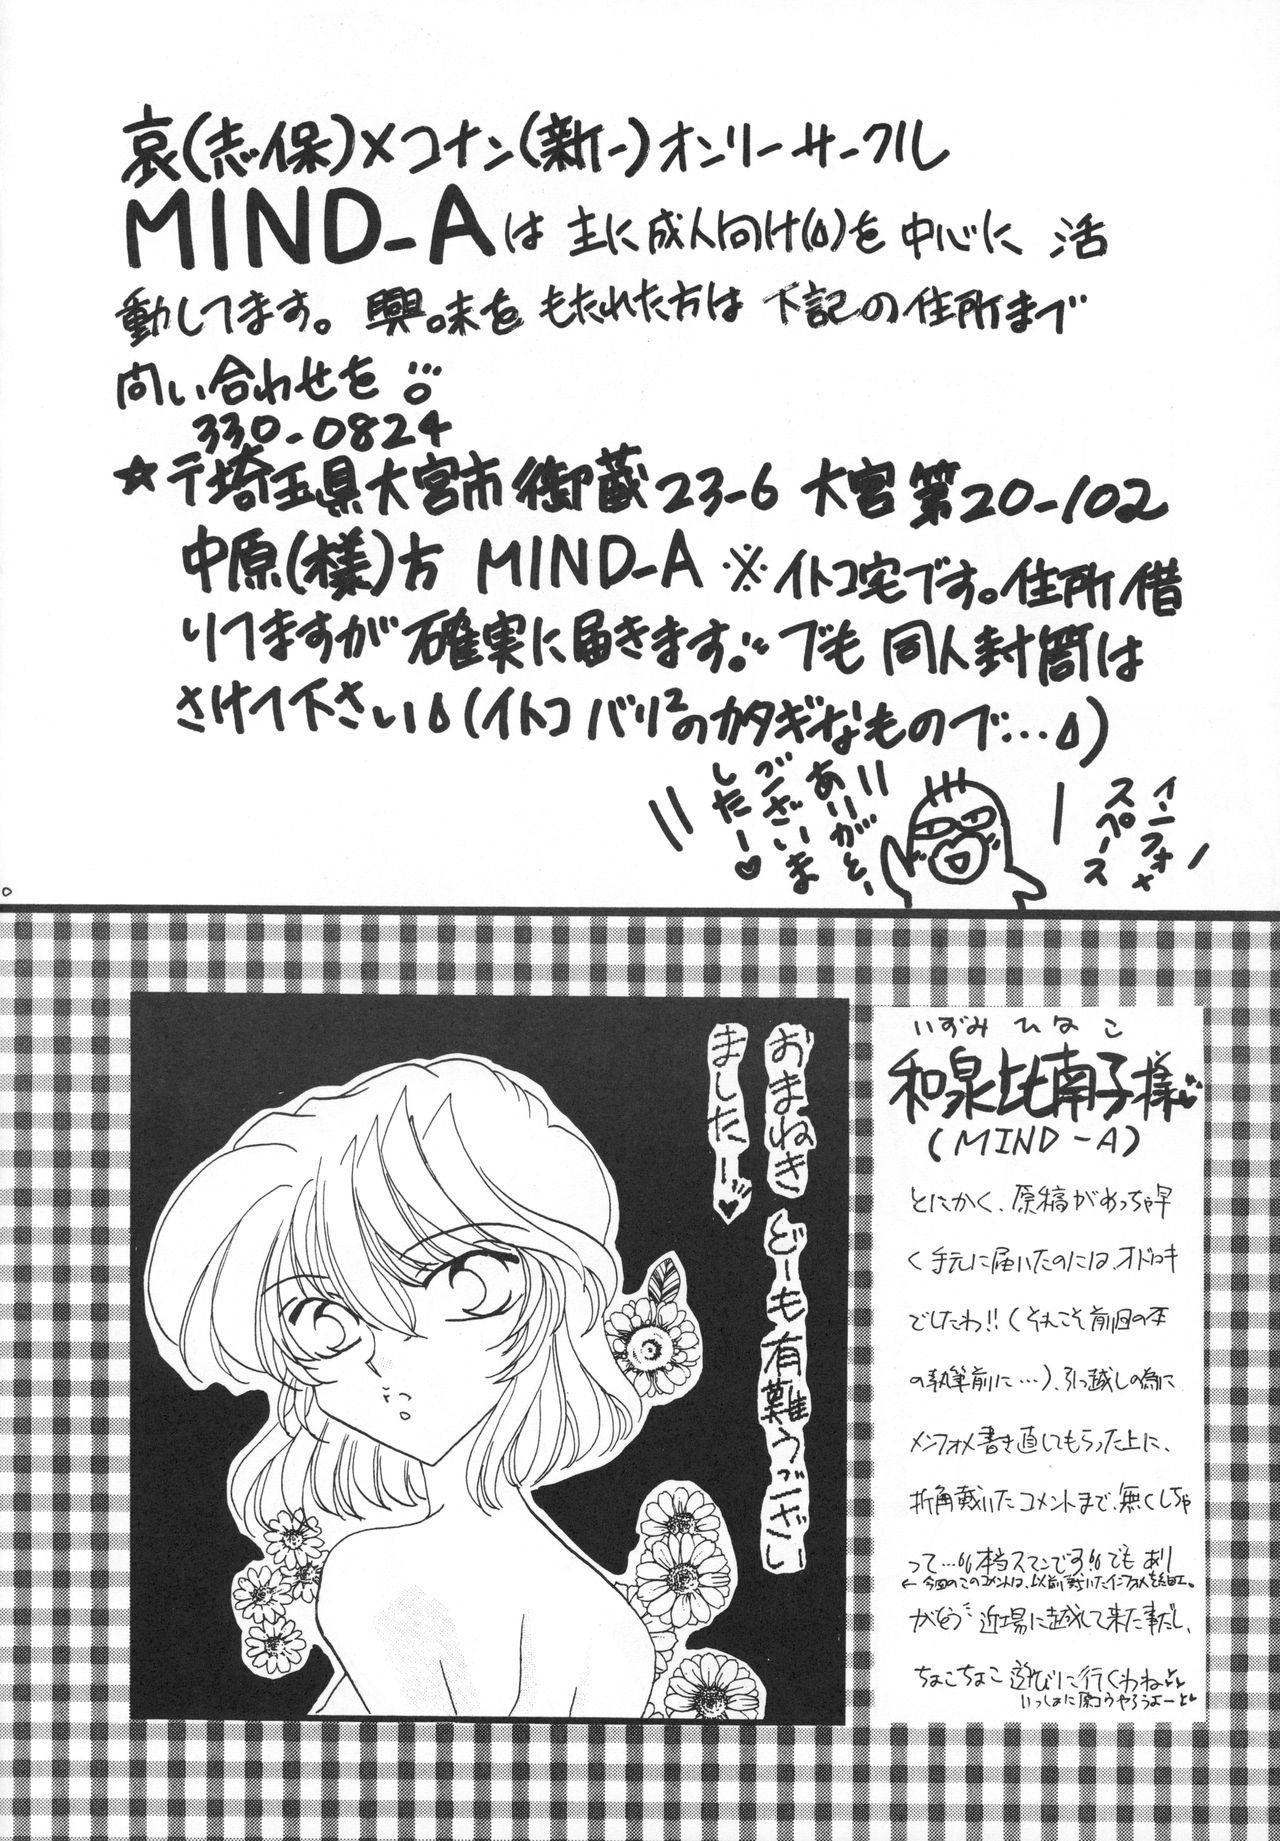 哀(志保)×コナン(新一)オンリーサークル
MIND-Aは 主に成人向け(δ)を中心に 活
動してます。興味をもたれた方は下記の住所まで
問い合わせを
330-0824
☆〒埼玉県大宮市御蔵23-6 大宮第20-102
中原(様)方 MIND-A ※イトコ宅です。住所借
りてますが確実に届きます。でも同人封筒は
さけて下さい(イトコバリ2のカタギなもので…)
インフォメ
スペース
ありがとう
ございま
した-♡
おまねき どーも有難うござい
ました-♥
いずみ ひなこ
和泉比南子様
(MIND-A)
とにかく、原稿がめっちゃ早
く手元に届いたのには、オドロキ
でしたわ!!(それこそ前回の本
の執筆前に…)、引っ越しの為に
インフォメ書き直してもらった上に、
折角戴いたコメントまで、無くしちゃ
って…本当スマンです でも あり
←今回のこのコメントは、以前戴いたインフォを
がとう 近場に越して来た事だし、
ちょこちょこ遊びに行くわね
いっしょに原コウやろうよー